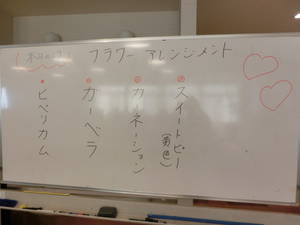 本日の花
フラワーアレンジメント
•スイートピー
(黄色)
•カーネーション
•ガーベラ
•ヒペリカム